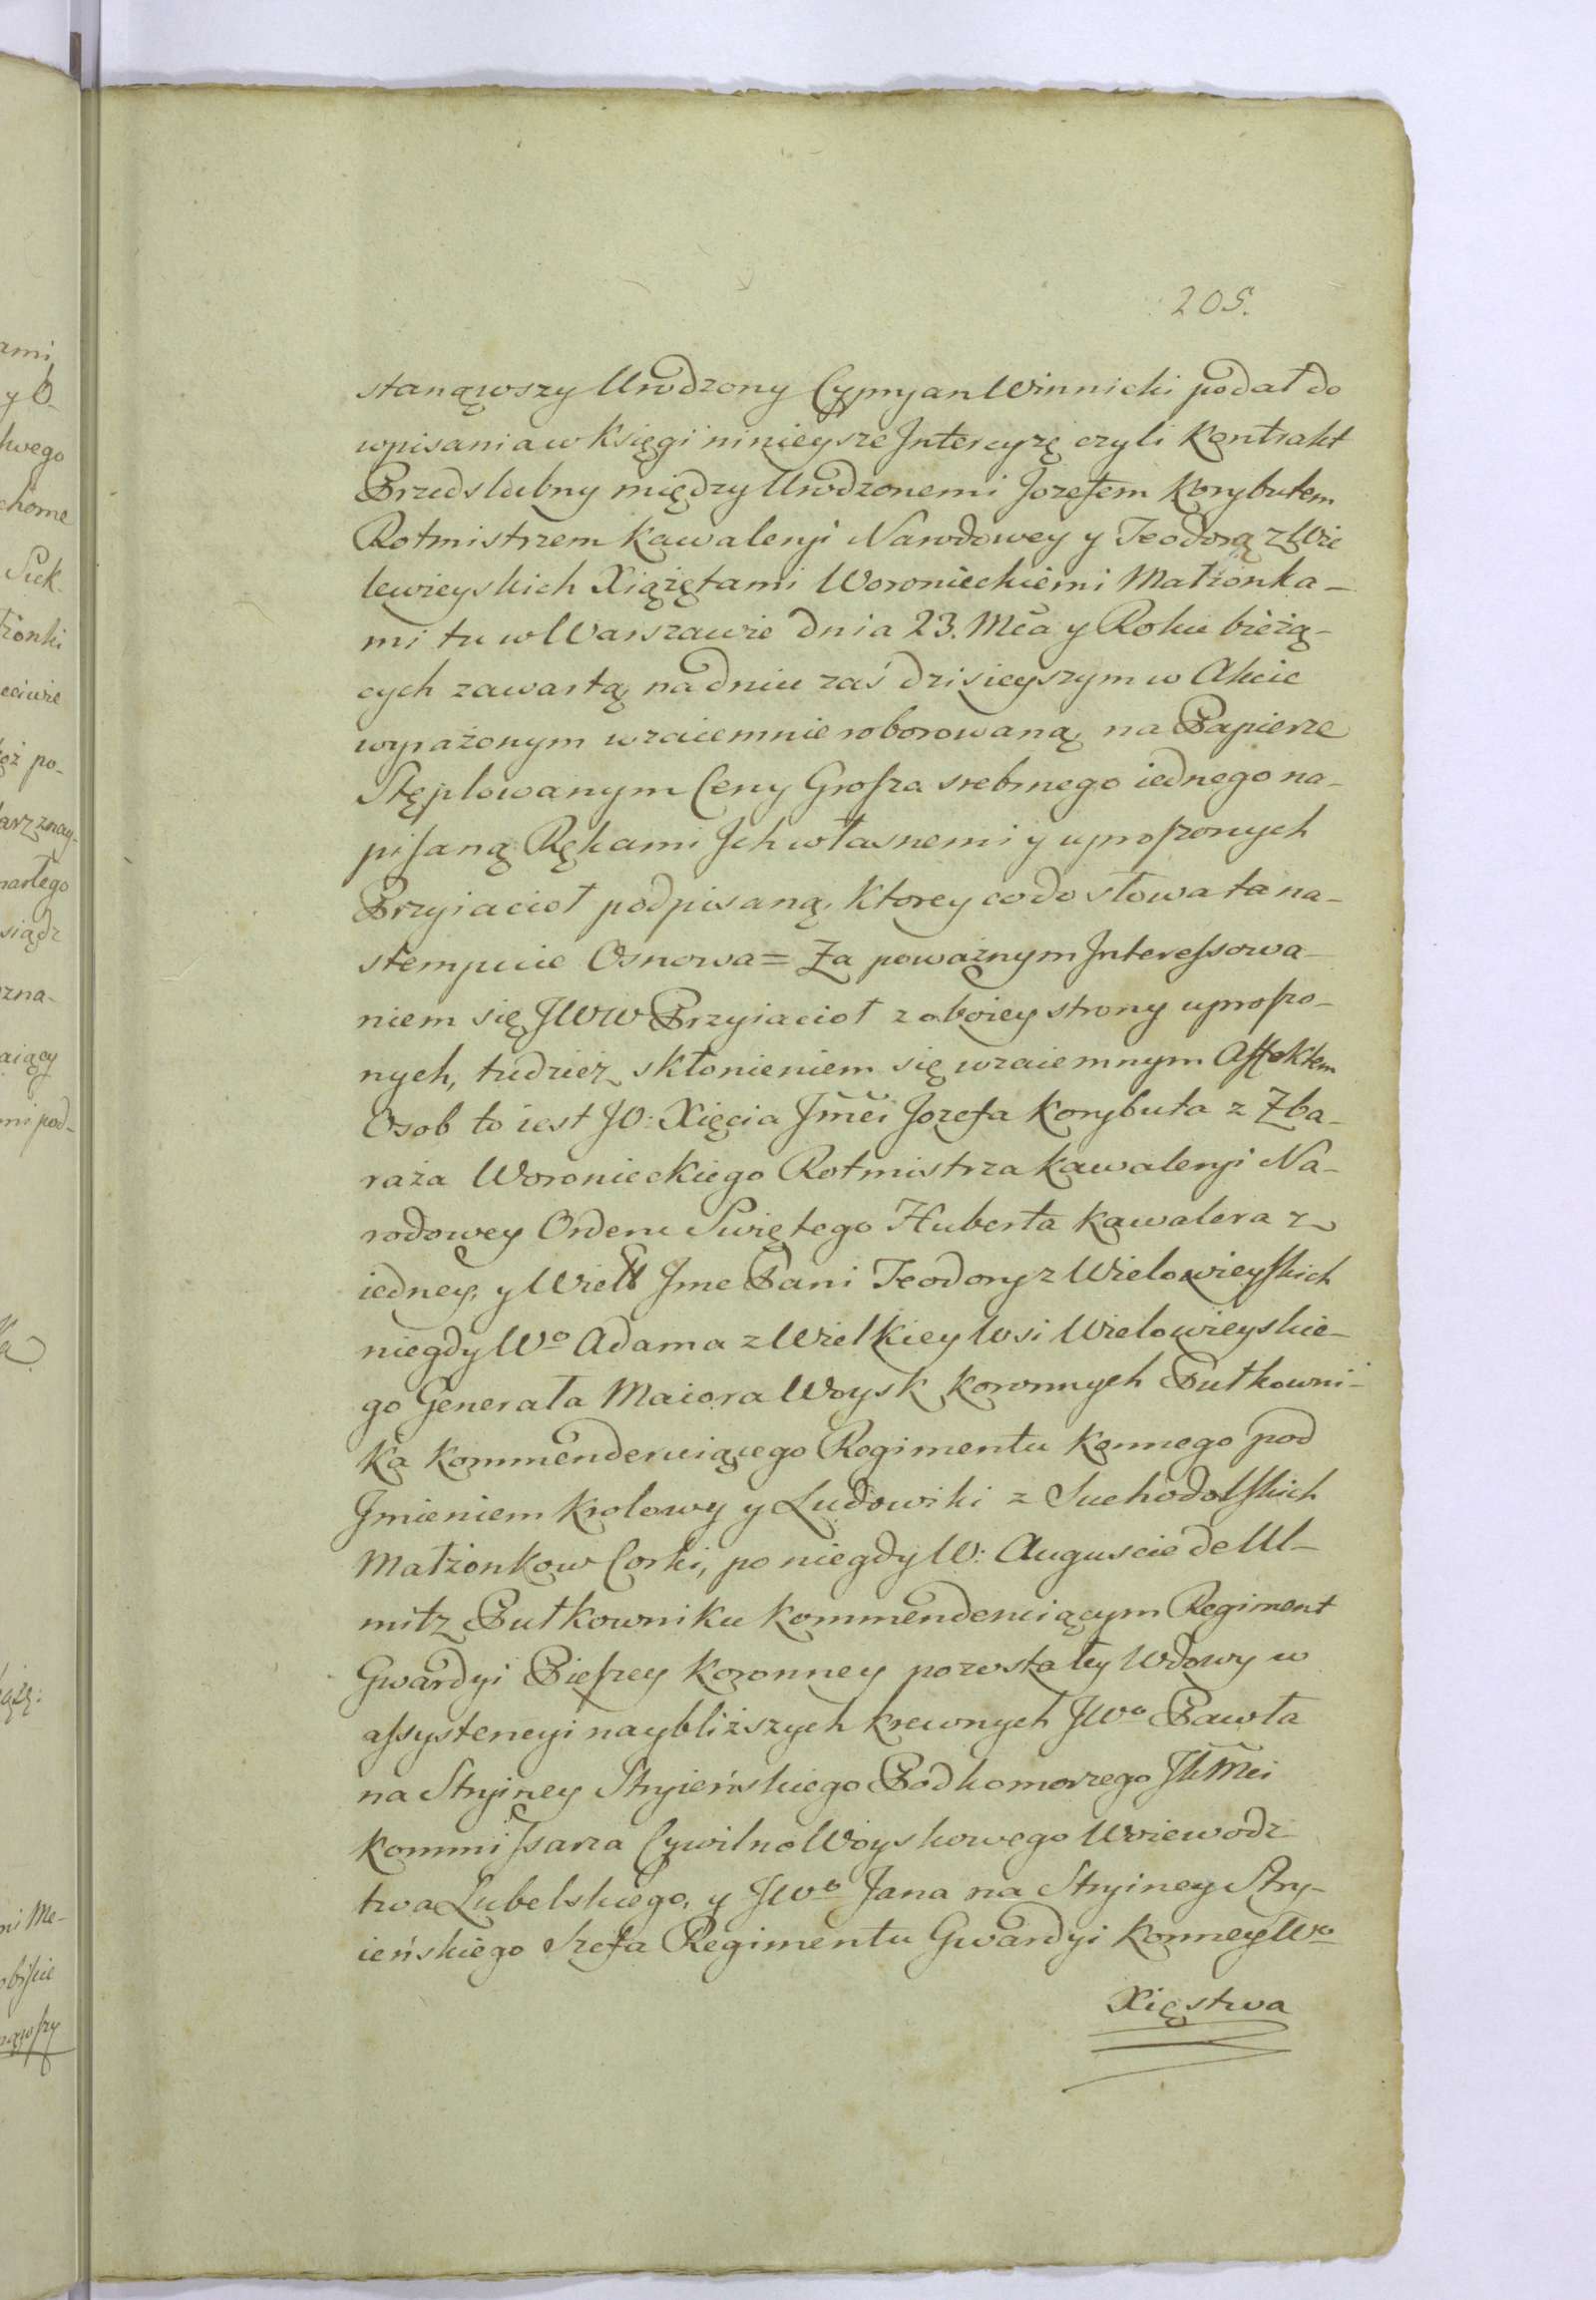 205.
stanąwszy Urodzony Cypryan Winnicki podał do
wpisania w Księgi ninieysze Intercyzę czyli Kontrakt
Przedslubny między Urodzonemi Jozefem Korybutem
Rotmistrzem Kawaleryi Narodowey y Teodorą z Wie
lewieyskich Xiążętami Woronieckiemi Małżonka-
mi tu w Warszawie dnia 23. Mca y Roku bieżą-
cych zawartą, na dniu zaś dzisieyszym w Akcie
wyrażonym wzaiemnie roborowaną na Papierze
Stęplowanym Ceny Grosza srebrnego iednego na-
pisaną Rękami Ich własnemi y uproszonych
Przyiacioł podpisaną, Ktorey co do słowa ta na-
stempuie Osnowa = Za poważnym Interessowa-
niem się JWW Przyiacioł z oboiey strony uproszo-
nych, tudzież skłonieniem się wzaiemnym Affektem
Osob to iest JO: Xięcia Jmci Jozefa Korybuta z Zba-
raża Woronieckiego Rotmistrza Kawaleryi Na-
rodowey Orderu Swiętego Huberta Kawalera z
iedney, y Wiel Jme Pani Teodory z Wielowieyskich
niegdy Wo Adama z Wielkiey Wsi Wielowieyskie-
go Generała Maiora Woysk Koronnych Pułkowni-
ka Kommenderuiącego Regimentu Konnego pod
Imieniem Krolowy y Ludowiki z Suchodolskich
Małżonkow Corki, po niegdy W: Auguscie de Ul-
mitz Pułkowniku Kommenderuiącym Regiment
Gwardyi Pieszey Koronney pozostałey Wdowy w
assystencyi naybliższych krewnych JWo Pawła
na Stryiney Stryieńskiego Podkomorzego JKMci
Kommissarza Cywilno Woyskowego Woiewodz
twa Lubelskiego, y JWo Jana na Stryiney Stry-
ieńskiego Szefa Regimentu Gwardyi Konney Wo
Xięstwa